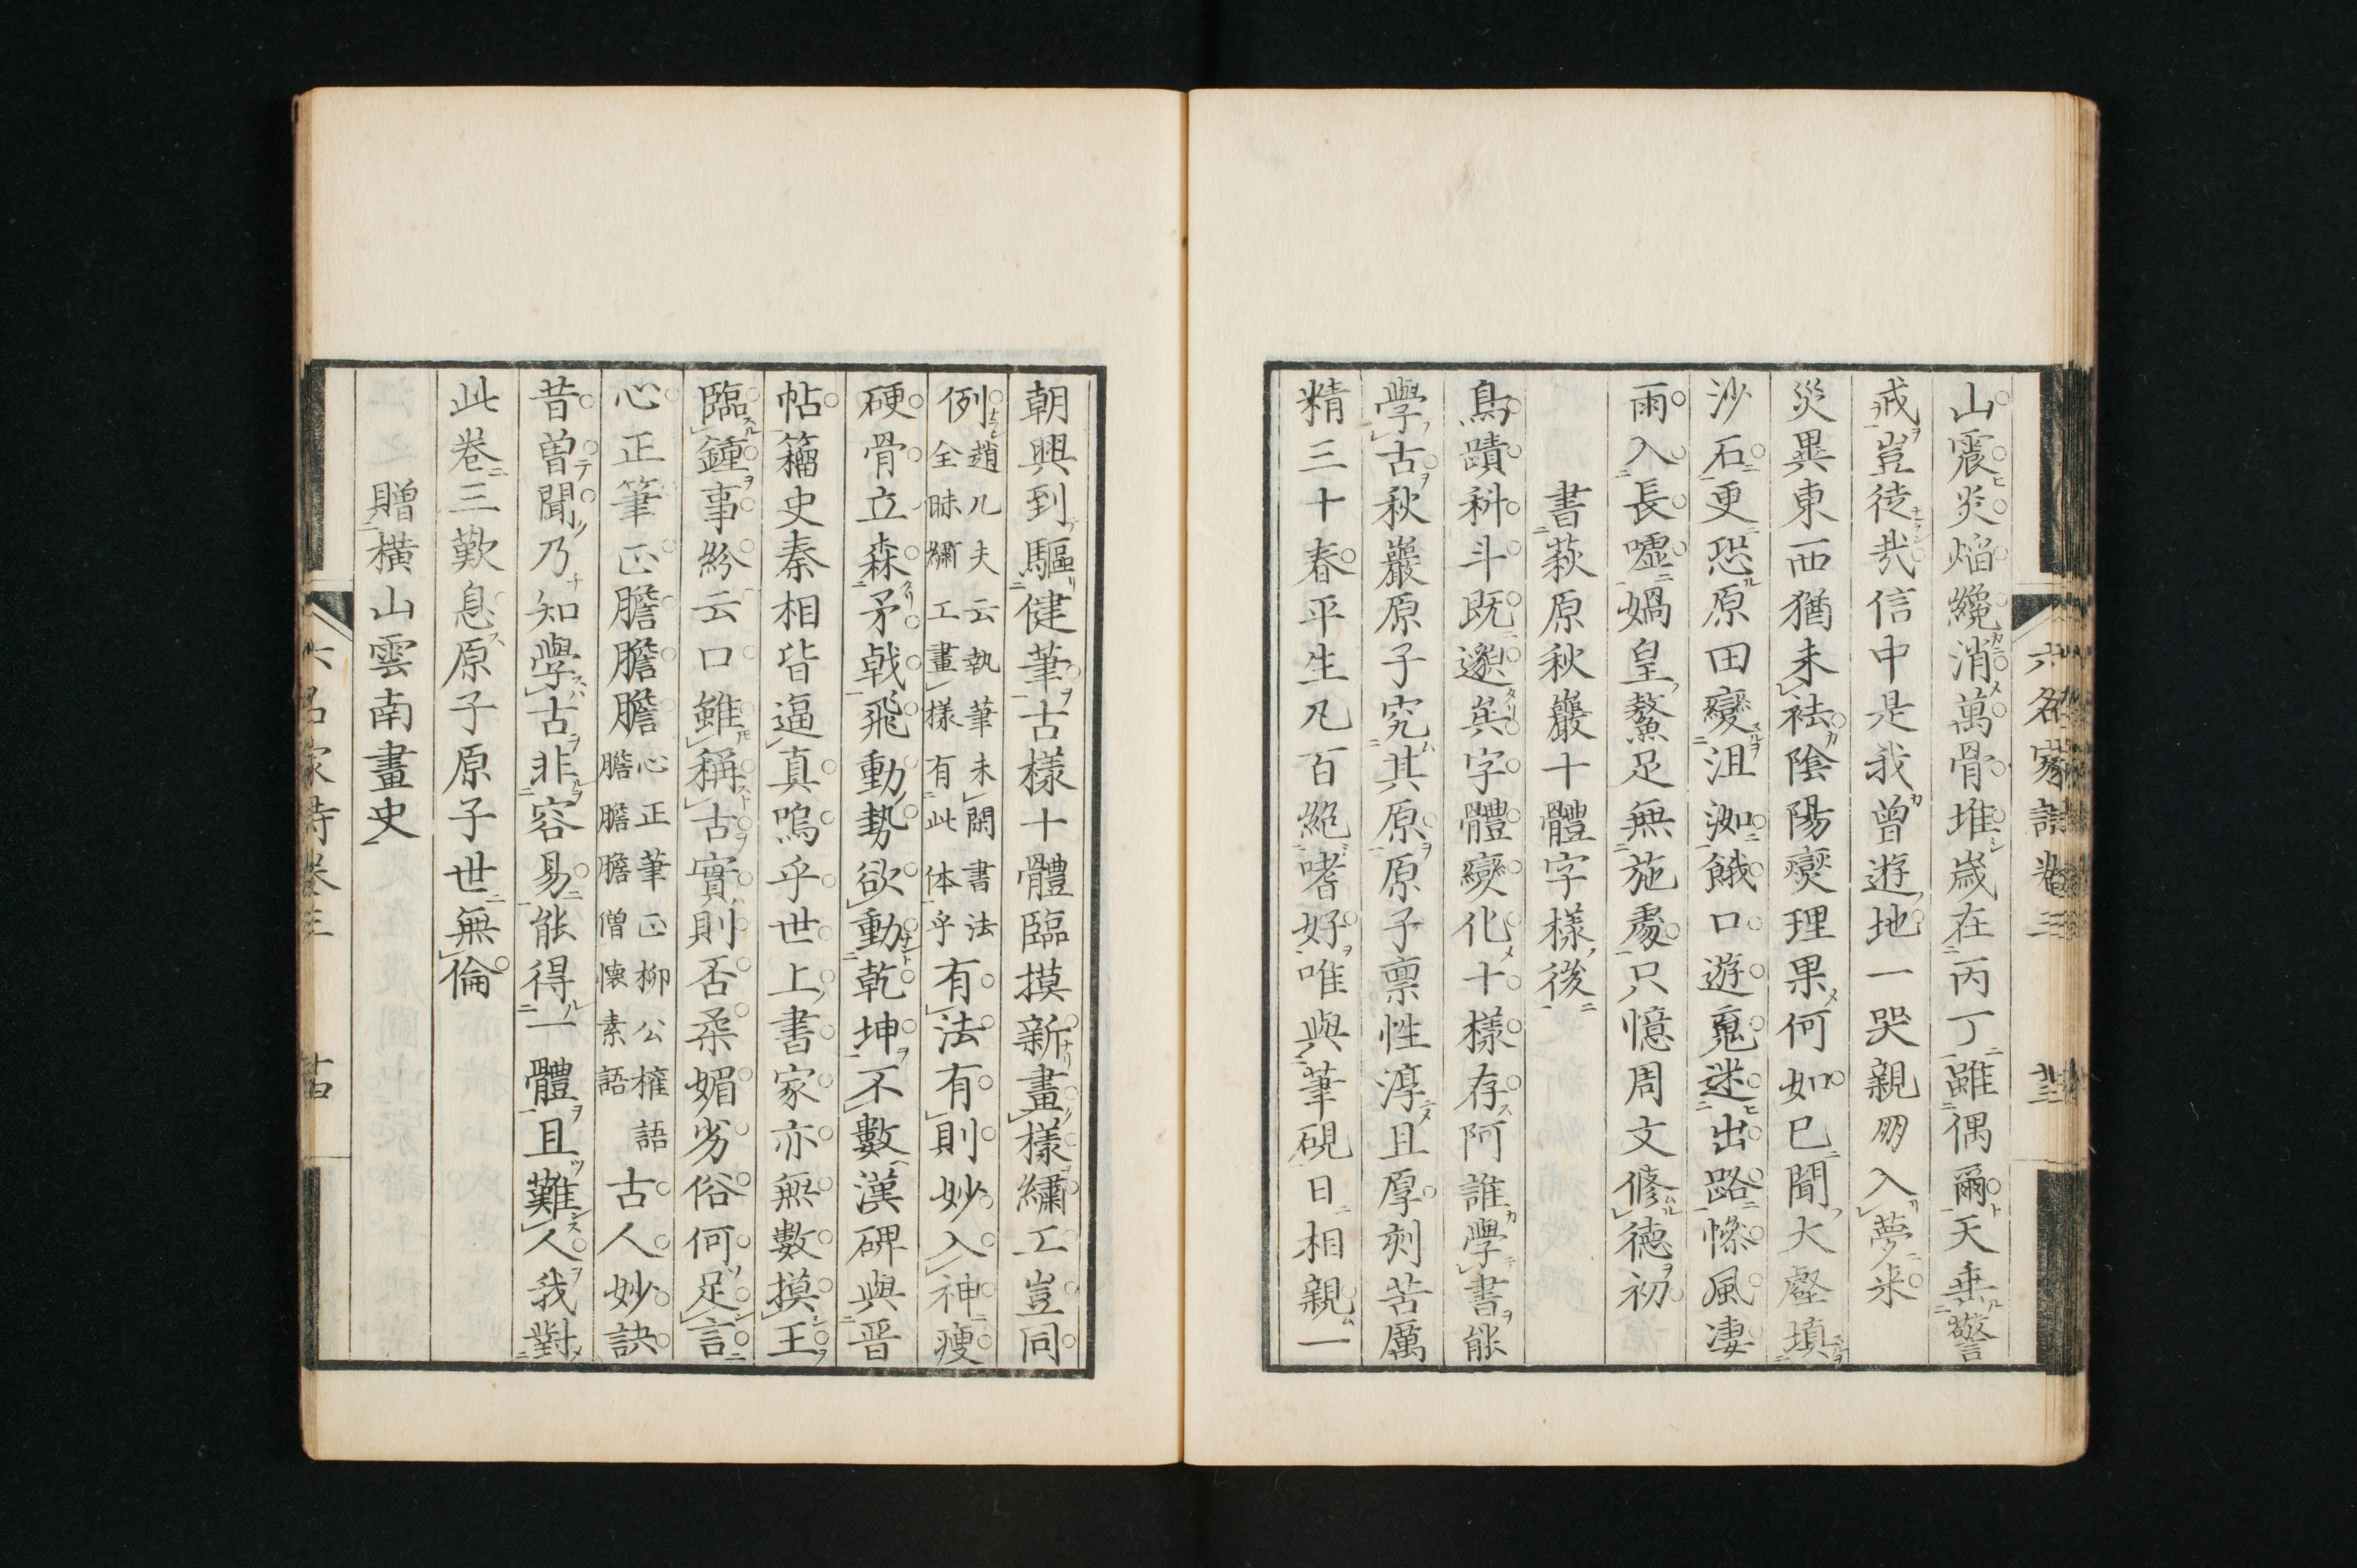 山震炎焰纔消萬骨堆歳在丙丁雖偶爾天垂警
戒豈徒哉信中是我曾遊地一哭親朋入夢来
災異東西猶未祛陰陽爕理果何如已聞大壑塡
沙石更恐原田變沮洳餓口遊䰟迷出路慘風凄
雨入長嘘媧皇鰲足無施䖏只憶周文修德初
書萩原秋巖十體字樣後
鳥蹟科斗既邈矣字體變化十樣存阿誰學書能
學古秋巖原子究其原原子禀性淳且厚刻苦厲
精三十春平生凡百絶嗜好唯與筆硯日相親一
六名家詩 卷三
朝興到驅健筆古樣十體臨摸新畫樣繡工豈同
例趙凡夫云執筆未閑書法全昧繡工畫樣有此体乎有法有則妙入神瘦
硬骨立森矛戟飛動勢欲動乾坤不數漢碑與晋
帖籀史秦相皆逼真嗚乎世上書家亦無數摸王
臨鍾事紛云口雖稱古實則否柔媚劣俗何足言
心正筆正膽膽膽心正筆正柳公權語膽膽膽僧懐素語古人妙訣
昔曾聞乃知學古非容易能得一體且難人我對
此卷三歎息原子原子世無倫
贈横山雲南畫史
六名家詩卷三